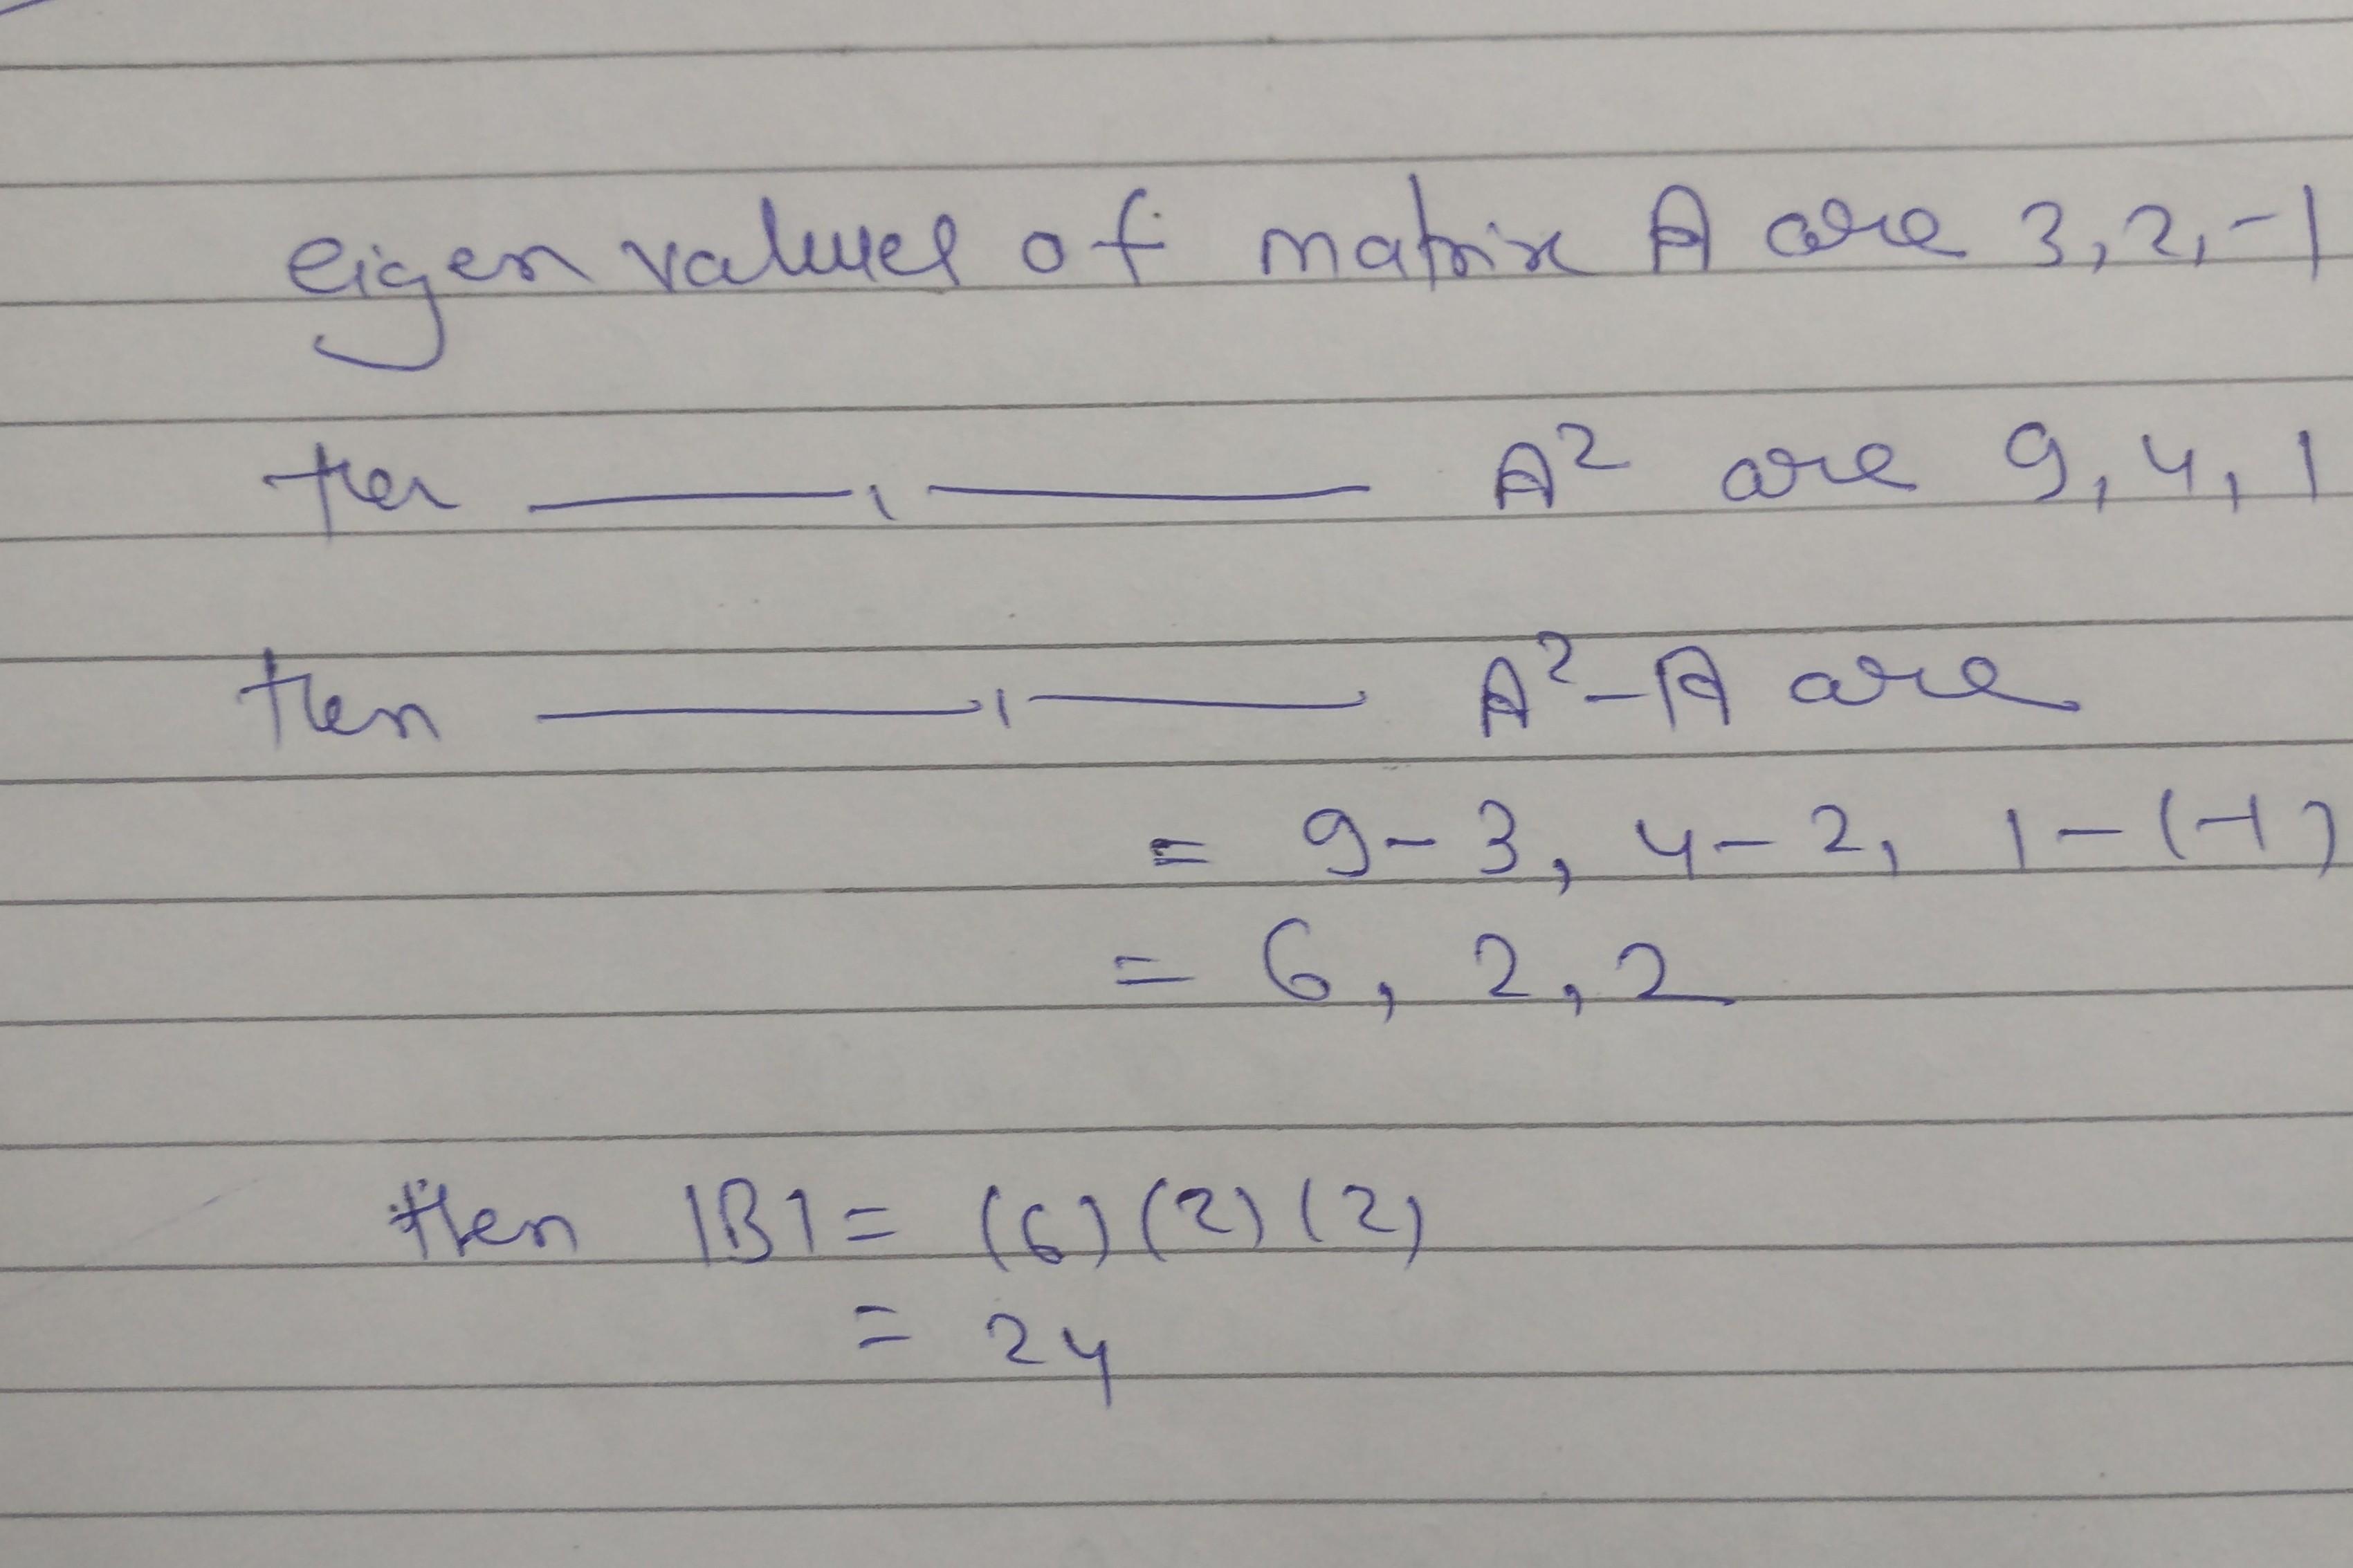 eigen values of matrix A are 3, 2, -1
then ——— , ——— A² are 9, 4, 1
then ——— , ——— A² - A are
= 9 - 3, 4 - 2, 1 - (-1)
= 6, 2, 2
then |B| = (6) (2) (2)
= 24